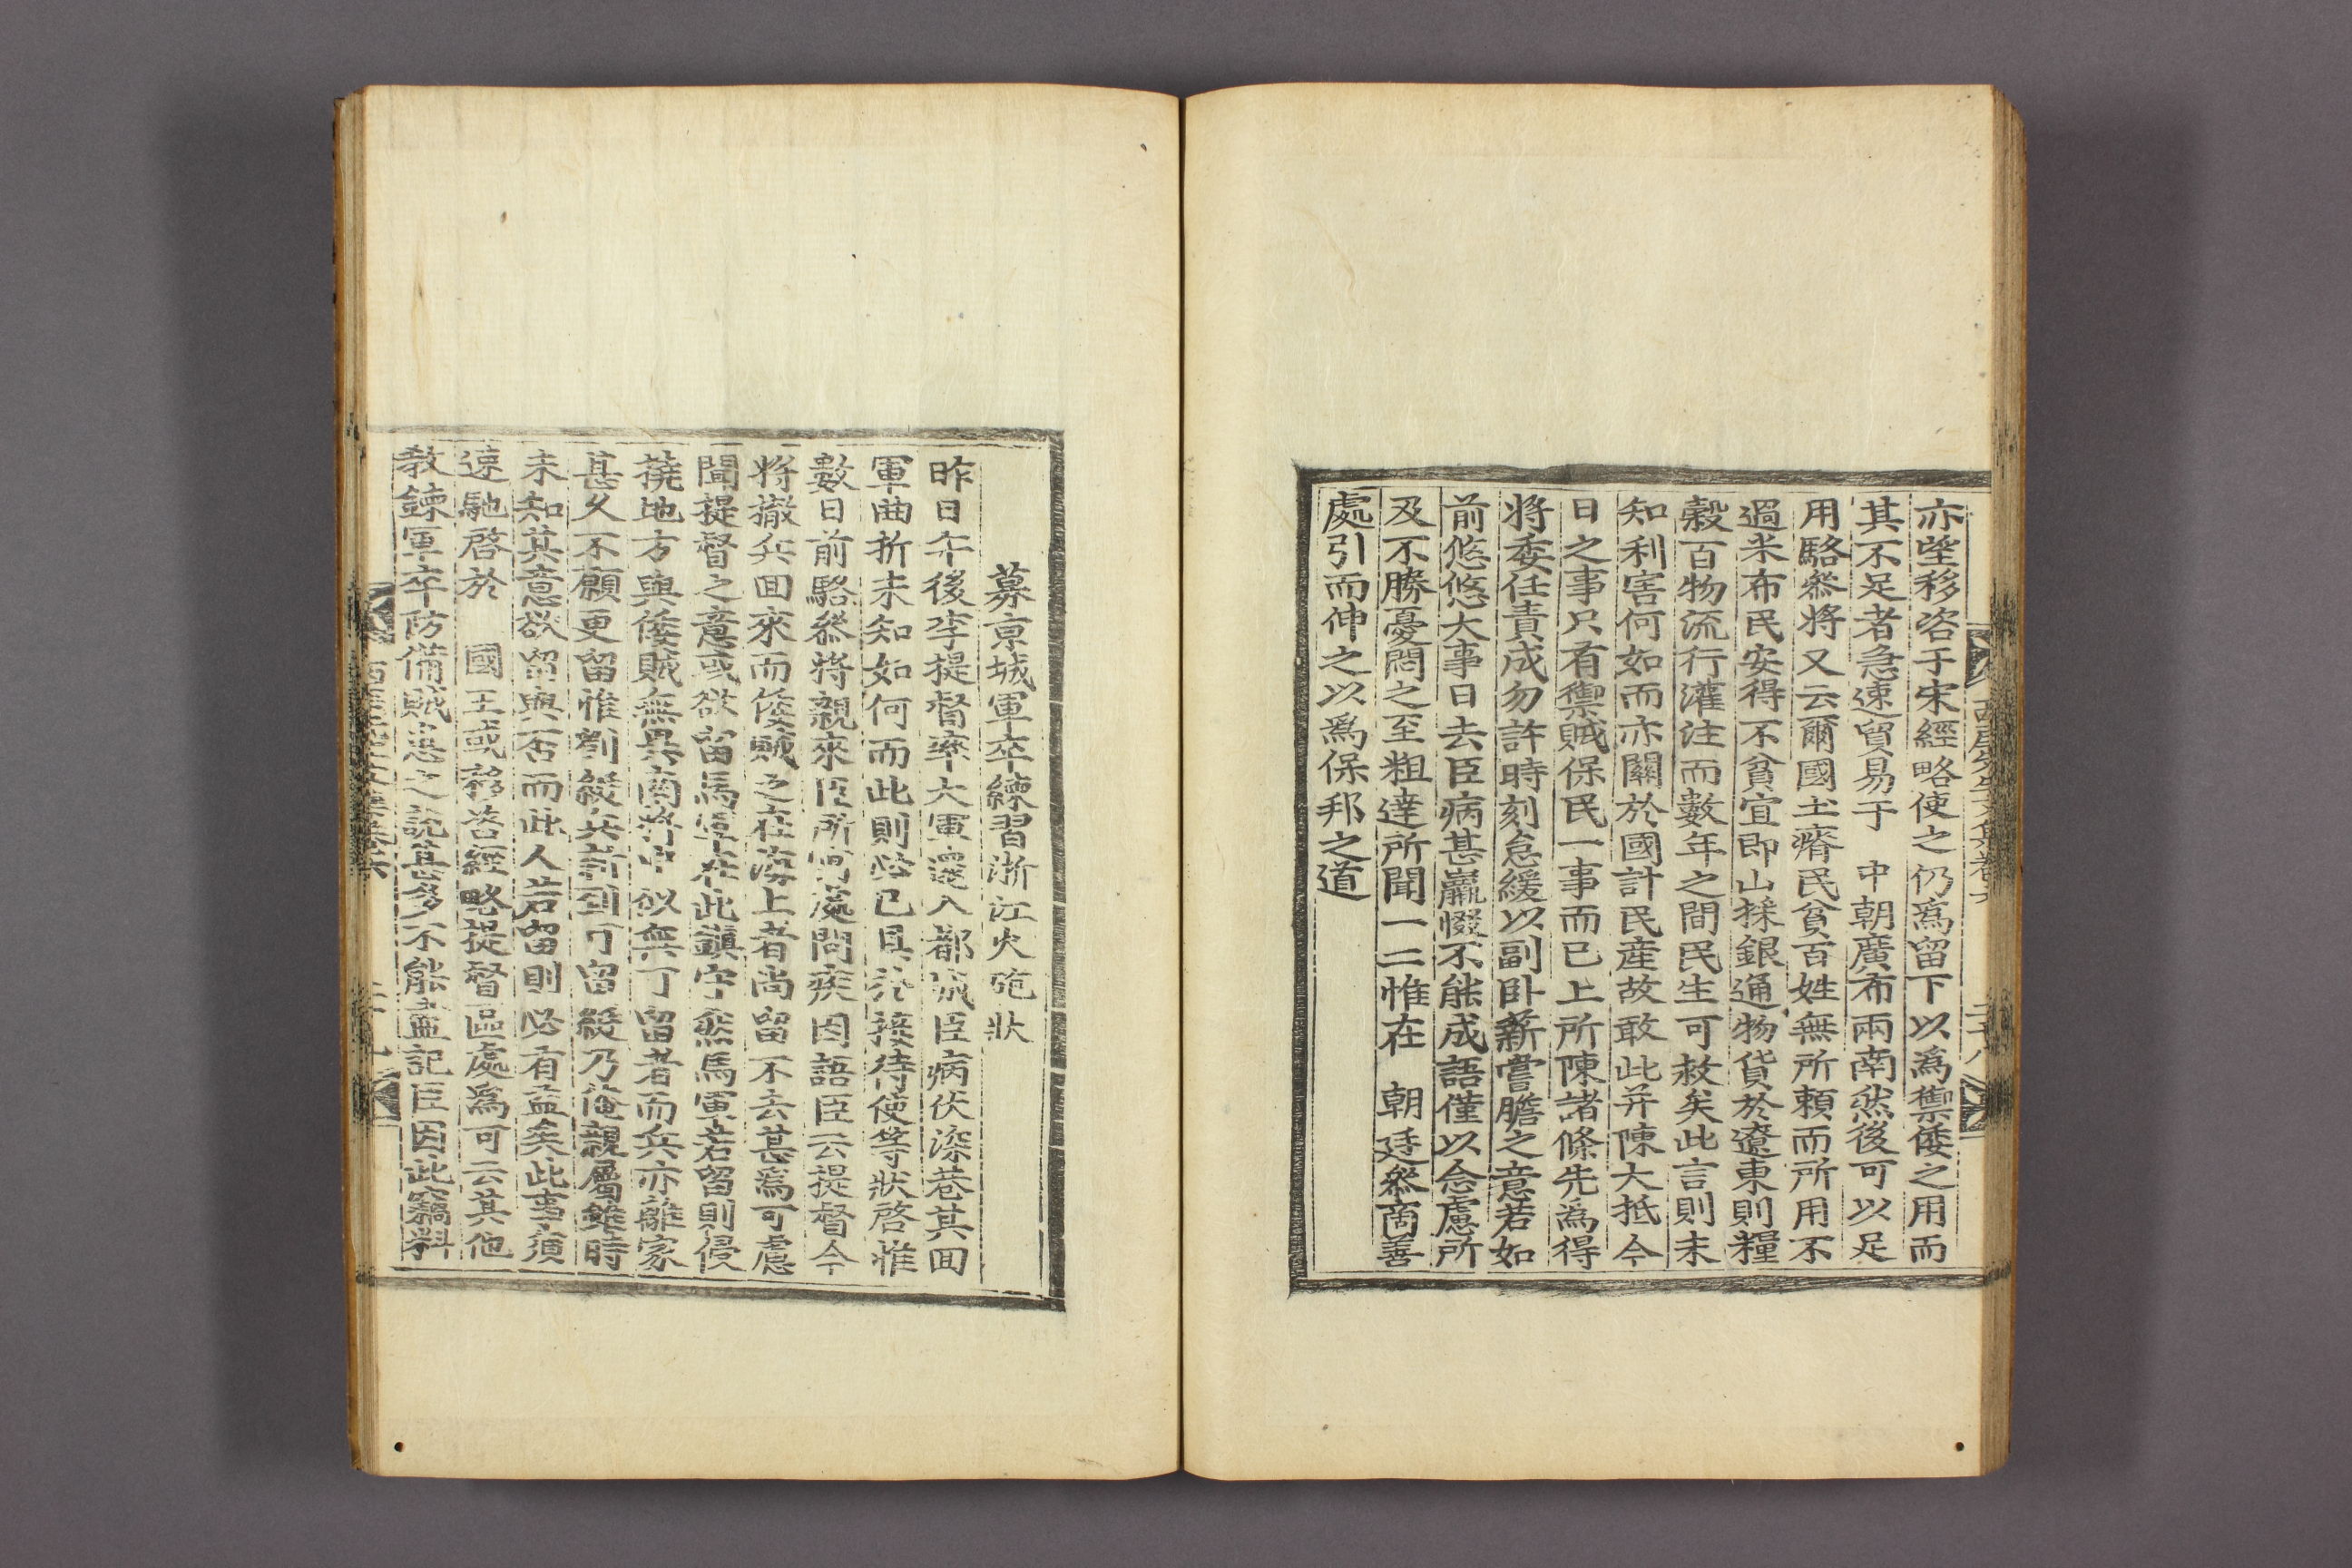 亦望移咨于宋經略使之仍爲留下以爲禦倭之用而
其不足者急速貿易于 中朝廣布兩南然後可以足
用駱叅將又云爾國土瘠民貧百姓無所賴而所用不
過米布民安得不貧宜即山採銀通物貨於遼東則糧
穀百物流行灌注而數年之間民生可救矣此言則未
知利害何如而亦關於國計民産故敢此并陳大抵今
日之事只有禦賊保民一事而已上所陳諸條先爲得
將委任責成勿許時刻怠緩以副卧薪嘗膽之意若如
前悠悠大事日去臣病甚羸惙不能成語僅以念慮所
及不勝憂悶之至粗達所聞一二惟在 朝廷叅商善
處引而伸之以爲保邦之道
募京城軍卒練習浙江火砲狀
昨日午後李提督率大軍還入都城臣病伏深巷其回
軍曲折未知如何而此則必已具於接待使等狀啓惟
數日前駱叅將親來臣所寓處問疾因語臣云提督今
將撤兵回來而倭賊之在海上者尚留不去甚爲可慮
聞提督之意或欲留馬軍在此鎭守然馬軍若留則侵
撓地方與倭賊無異南將中似無可留者而兵亦離家
甚久不願更留惟劉綎兵新到可留綎乃俺親屬雖時
未知其意欲留與否而此人若留則必有益矣此事須
速馳啓於 國王或移咨經略提督區處爲可云其他
教鍊軍卒防備賊患之說甚多不能盡記臣因此竊料